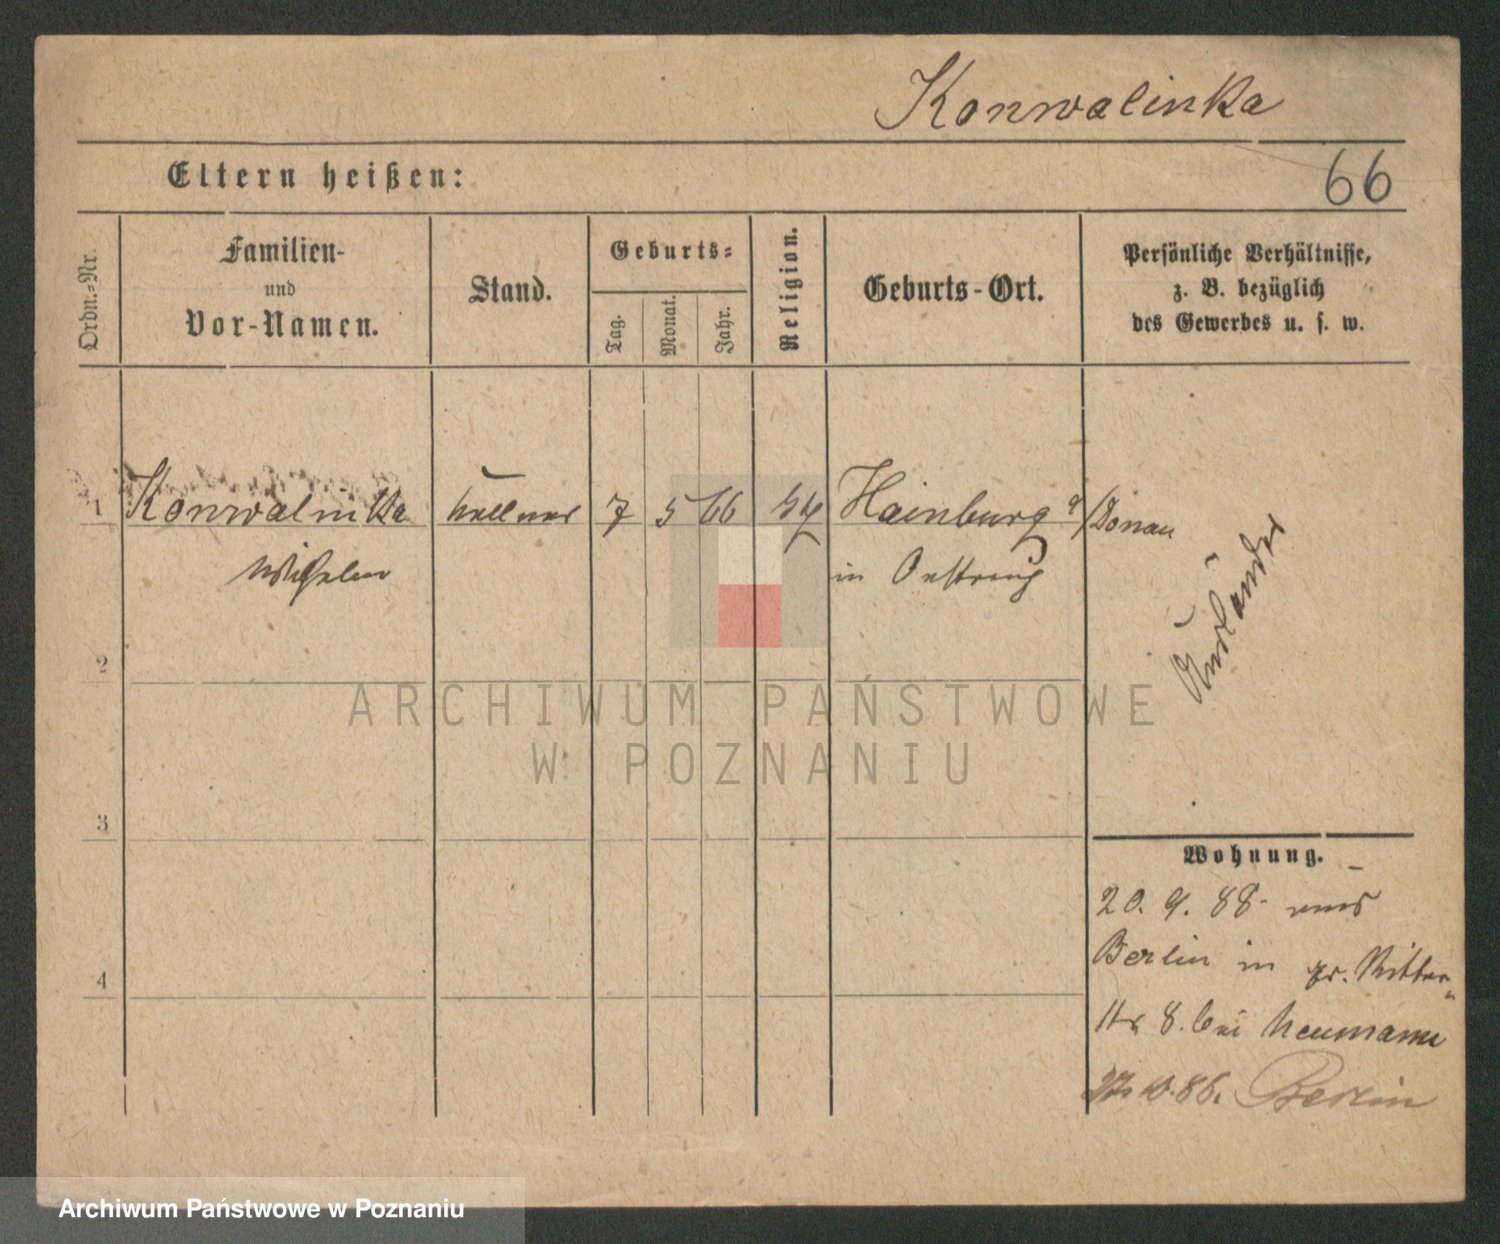 Konwalinka
Eltern heißen:
66
Ordn.=Nr.
Familien-
und
Vor-Namen.
Stand.
Geburts=
Tag.
Monat.
Jahr.
Religion.
Geburts-Ort.
Persönliche Verhältnisse,
z. B. bezüglich
des Gewerbes u. s. w.
1 Konwalinka Kellner 7 5 66 Hainburg a/Donau
Wilhelm in Oestreich
Ausländer
2
ARCHIWUM PAŃSTWOWE
W POZNANIU
3
Wohnung.
20. 9. 88. aus
Berlin in gr. Ritter-
str 8. bei Neumann
4
88. Berlin
Archiwum Państwowe w Poznaniu